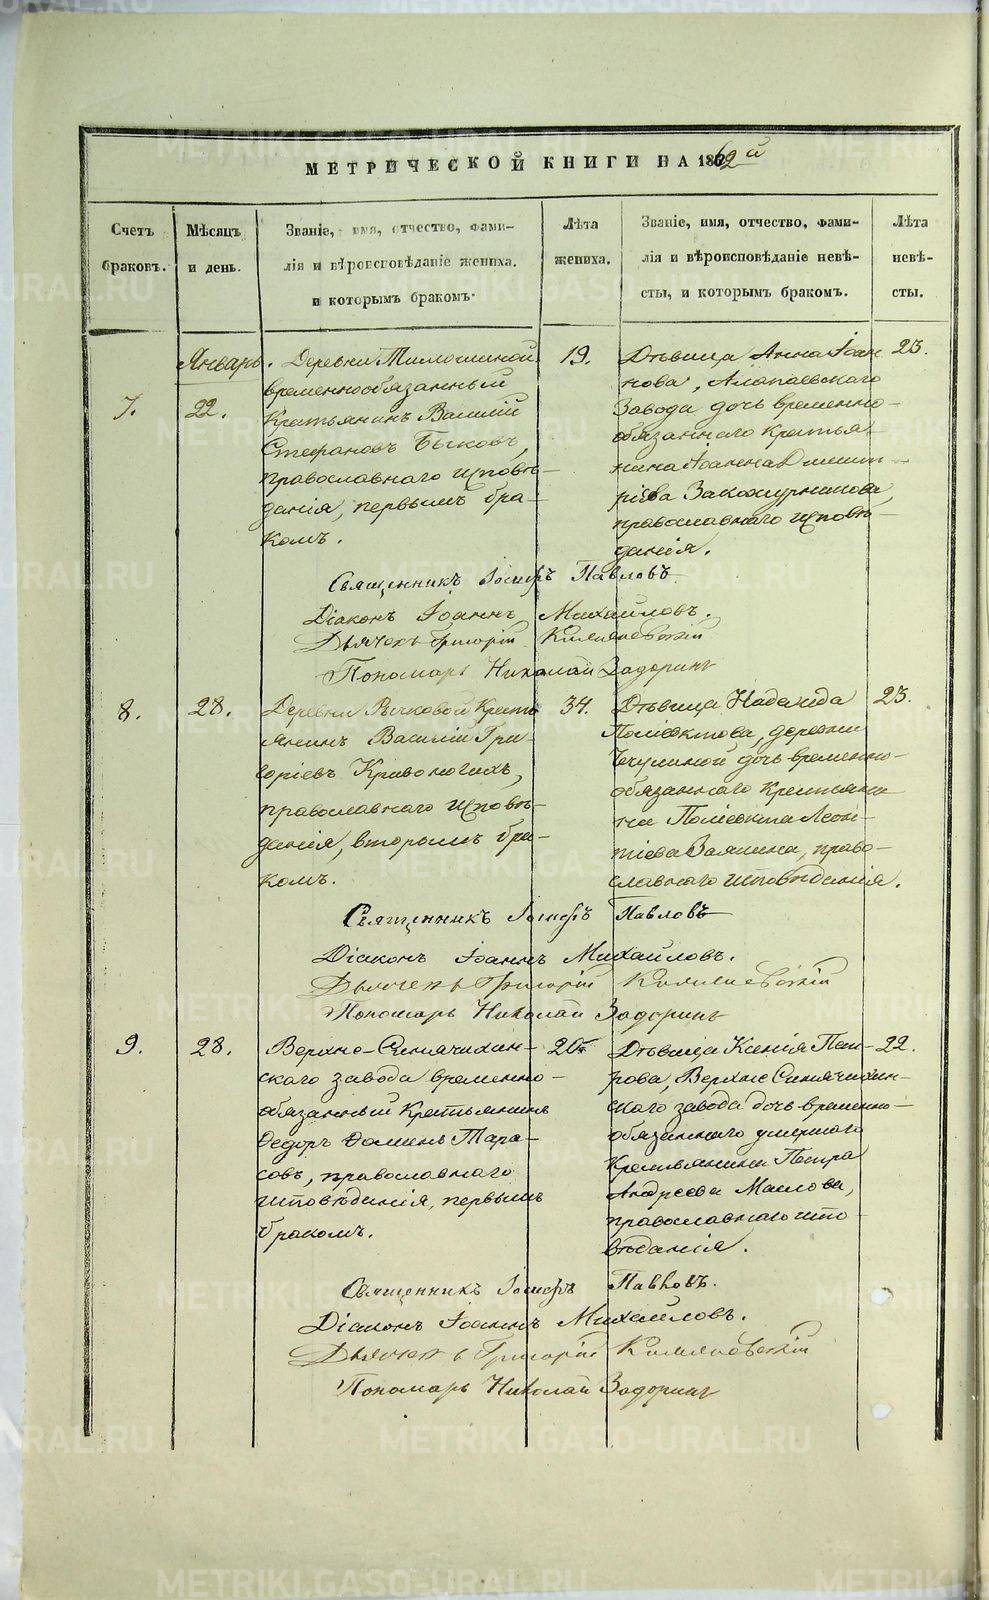 МЕТРИЧЕСКОЙ КНИГИ НА 1862й
Счетъ
браковъ.
Мѣсяцъ
и день.
Званіе, имя, отчество, фами-
лія и вѣроисповѣданіе жениха.
и которымъ бракомъ.
Лѣта
жениха.
Званіе, имя, отчество, фами-
лія и вѣроисповѣданіе невѣ-
сты, и которымъ бракомъ.
Лѣта
невѣ-
сты.
7.
Январь.
22.
Деревни Тимошиной
временнообязанный
Крестьянинъ Василій
Стефановъ Быковъ,
православнаго исповѣ-
данія, первымъ бра-
комъ.
19.
Дѣвица Анна Іоан
нова, Алапаевскаго
Завода дочь временно-
обязаннаго крестья-
нина Іоанна Димит-
ріева Закожурникова,
православнаго исповѣ-
данія.
23.
Священникъ Іосифъ Павловъ
Діаконъ Іоаннъ Михайловъ.
Дьячекъ Григорій
Пономарь Николай Задоринъ
8.
28.
Деревни Рычковой Кресть
янинъ Василій Гри-
горіевъ Кривоногихъ,
православнаго исповѣ-
данія, вторымъ бра-
комъ.
34.
Дѣвица Надежда
Поліектова, деревни
дочь временно-
обязаннаго Крестьяни
на Поліекта Леон-
тіева Заякина, право-
славнаго исповѣданія.
23.
Священникъ Іосифъ Павловъ
Діаконъ Іоаннъ Михайловъ.
Дьячекъ Григорій
Пономарь Николай Задоринъ
9.
28.
Верхне-Синячихин-
скаго завода временно-
обязанный Крестьянинъ
Ѳедоръ Ѳоминъ Тара-
совъ, православнаго
исповѣданія, первымъ
бракомъ.
20
Дѣвица Ксенія Пет-
рова, Верхне Синячихин-
скаго завода дочь временно-
обязаннаго умершаго
Крестьянина Петра
Андреева Маслова,
православнаго испо-
вѣданія.
22.
Священникъ Іосифъ Павловъ.
Діаконъ Іоаннъ Михайловъ.
Дьячекъ Григорій
Пономарь Николай Задоринъ
METRIKI.GASO-URAL.RU